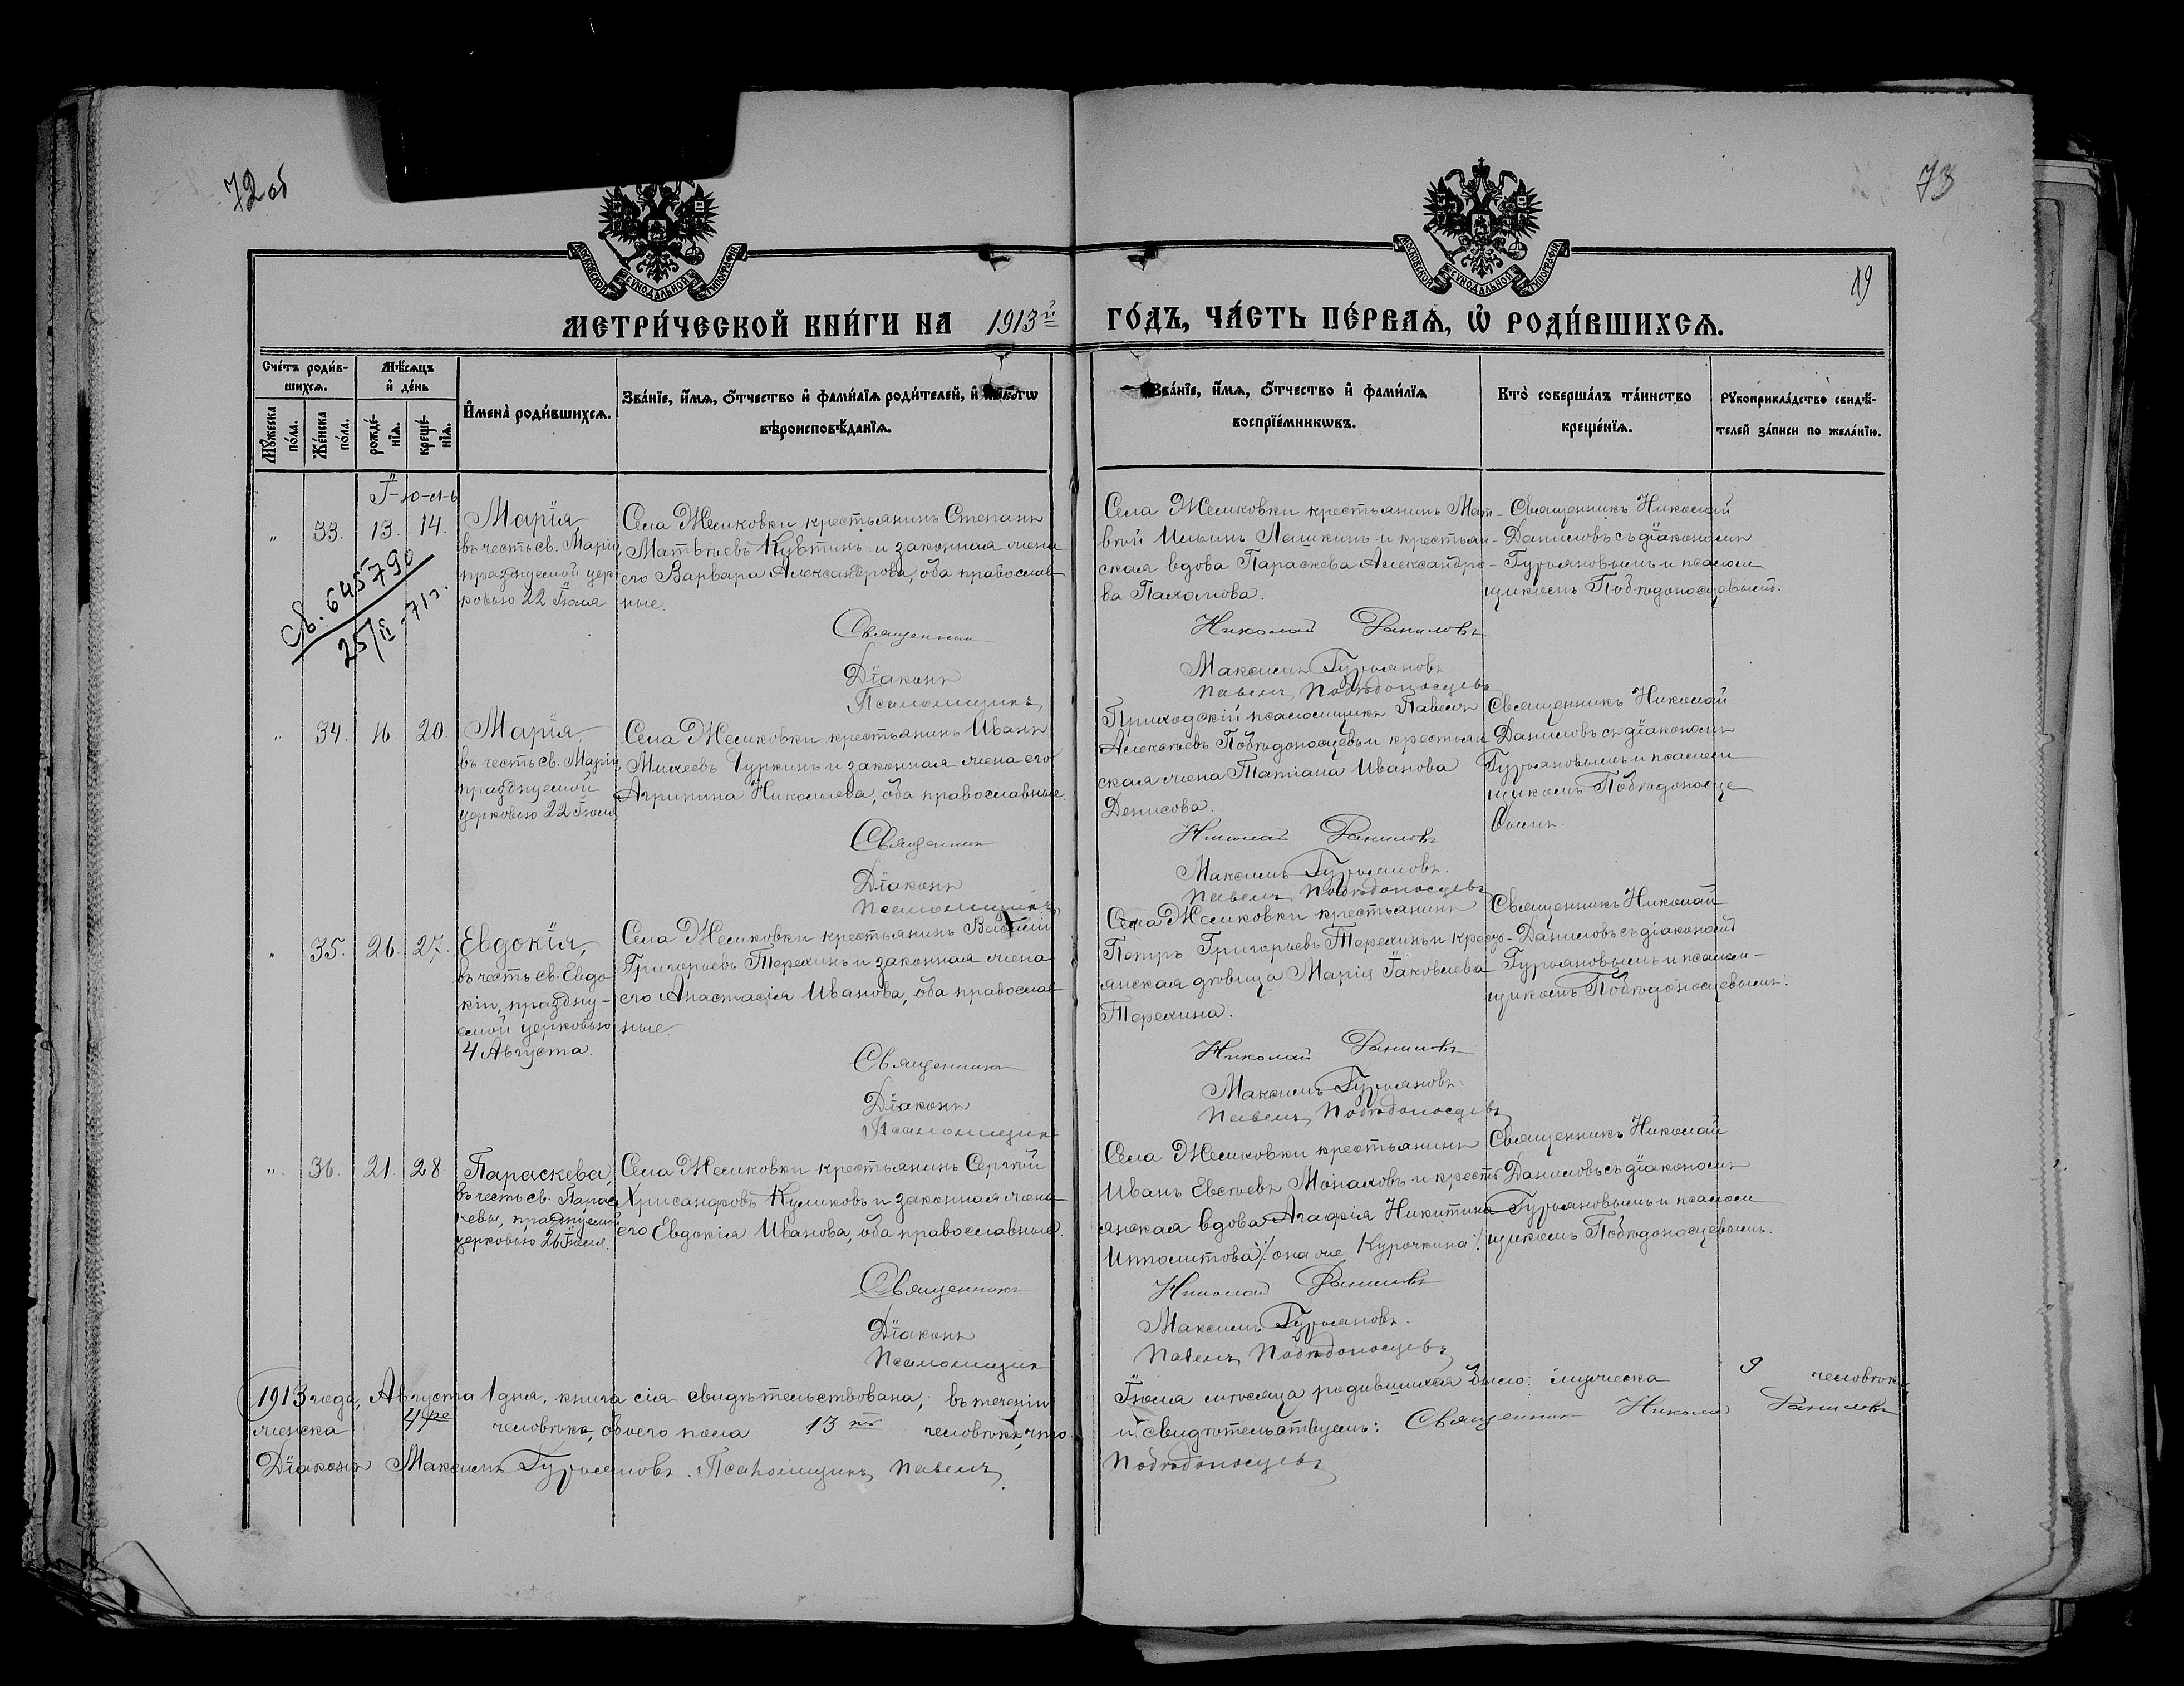 72 об
73
19
МОСКОВСКОЙ СѴНОДАЛЬНОЙ ТИПОГРАФІИ
МОСКОВСКОЙ СѴНОДАЛЬНОЙ ТИПОГРАФІИ
МЕТРИ́ЧЕСКОЙ КНИ́ГИ НА 1913й ГО́ДЪ, ЧА́СТЬ ПЕ́РВАѦ, Ѡ҆ РОДИ́ВШИХСѦ.
Сче́тъ роди́в-
шихсѧ.
Мꙋ́жеска
по́ла.
Же́нска
по́ла.
Мѣ́сѧцъ
и҆ де́нь
рожде́-
нїѧ.
креще́-
нїѧ.
И҆мена̀ роди́вшихсѧ.
Зва́нїе, и҆́мѧ, ѻ҆́тчество и҆ фами́лїѧ роди́телей, и҆ како́гѡ
вѣроисповѣ́данїѧ.
Зва́нїе, и҆́мѧ, ѻ҆́тчество и҆ фами́лїѧ
воспрїе́мникѡвъ.
Кто̀ соверша́лъ та́инство
креще́нїѧ.
Рꙋкоприкла́дство свидѣ́-
телей за́писи по жела́нїю.
І-ю-л-ь
" 33. 13. 14.
Св. 645790
25/II-71г.
Марія,
въ честь св. Маріи,
празднуемой цер-
ковью 22 Іюля
Села Жемковки крестьянинъ Степанъ
Матвѣевъ Кувтинъ и законная жена
его Варвара Александрова, оба православ-
ные.
Священникъ
Діаконъ
Псаломщикъ
Села Жемковки крестьянинъ Мат-
вѣй Ильинъ Лашкинъ и крестьян-
ская вдова Параскева Александро-
ва Палхонова.
Николай Даниловъ
Максимъ Гурьяновъ
Павелъ Побѣдоносцевъ
Священникъ Николай
Даниловъ съ діакономъ
Гурьяновымъ и псалом
щикомъ Побѣдоносцевымъ.
" 34. 16. 20.
Марія,
въ честь св. Маріи,
празднуемой
церковью 22 Іюля
Села Жемковки крестьянинъ Иванъ
Михеевъ Чуркинъ и законная жена его
Агрипина Николаева, оба православные.
Священникъ
Діаконъ
Псаломщикъ
Приходскій псаломщикъ Павелъ
Алексѣевъ Побѣдоносцевъ и крестьян
ская жена Татіана Иванова
Денисова.
Николай Даниловъ
Максимъ Гурьяновъ.
Павелъ Побѣдоносцевъ
Священникъ Николай
Даниловъ съ діакономъ
Гурьяновымъ и псалом
щикомъ Побѣдоносце
вымъ.
" 35. 26. 27.
Евдокія,
въ честь св. Евдо-
кіи, праздну-
емой церковью
4 Августа.
Села Жемковки крестьянинъ Василій
Григорьевъ Терехинъ и законная жена
его Анастасія Иванова, оба православ-
ные.
Священникъ
Діаконъ
Псаломщикъ
Села Жемковки крестьянинъ
Петръ Григорьевъ Терехинъ и крест-
янская дѣвица Марія Іаковлева
Терехина.
Николай Даниловъ
Максимъ Гурьяновъ.
Павелъ Побѣдоносцевъ
Священникъ Николай
Даниловъ съ діакономъ
Гурьяновымъ и псалом-
щикомъ Побѣдоносцевымъ.
" 36. 21. 28.
Параскева,
въ честь св. Парас
кевы, празднуемой
церковью 26 Іюля.
Села Жемковки крестьянинъ Сергѣй
Хрисанфовъ Куликовъ и законная жена
его Евдокія Иванова, оба православные.
Священникъ
Діаконъ
Псаломщикъ
Села Жемковки крестьянинъ
Иванъ Евсѣевъ Монаховъ и кресть
янская вдова Агафія Никитина
Ипполитова /: она же Курочкина:/
Николай Даниловъ
Максимъ Гурьяновъ.
Павелъ Побѣдоносцевъ
Священникъ Николай
Даниловъ съ діакономъ
Гурьяновымъ и псалом
щикомъ Побѣдоносцевымъ.
1913 года, Августа 1 дня, книга сія свидѣтельствована; въ теченіи Іюля мѣсяца родившихся было: мужеска 9 человѣкъ,
женска 4ре человѣка, обоего пола 13ть человѣкъ, что и свидѣтельствуемъ: Священникъ Николай Даниловъ
Діаконъ Максимъ Гурьяновъ. Псаломщикъ Павелъ Побѣдоносцевъ